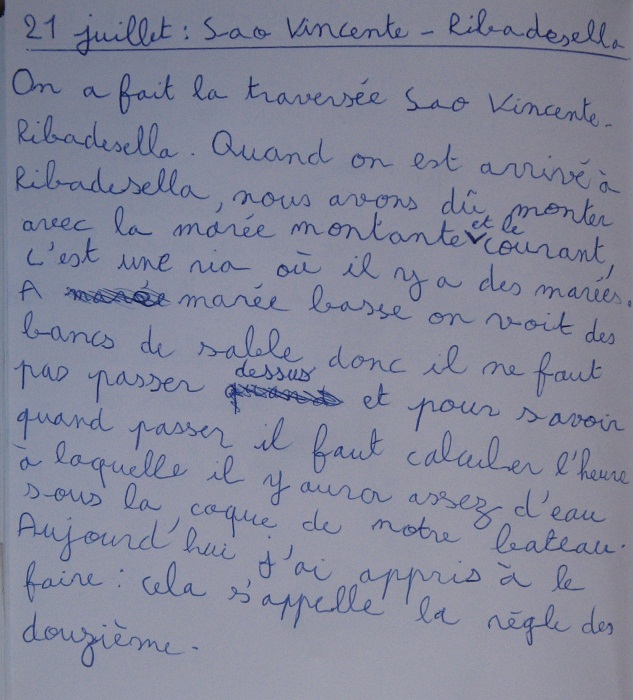 21 juillet : Sao Vincente - Ribadesella
On a fait la traversée Sao Vincente -
Ribadesella. Quand on est arrivé à
Ribadesella, nous avons dû monter
avec la marée montante et le courant,
c'est une ria où il y a des mariés.
A marée basse on voit des
bancs de sable donc il ne faut
pas passer dessus et pour savoir
quand passer il faut calculer l'heure
à laquelle il y aura assez d'eau
sous la coque de notre bateau.
Aujourd'hui j'ai appris à le
faire : cela s'appelle la règle des
douzième.